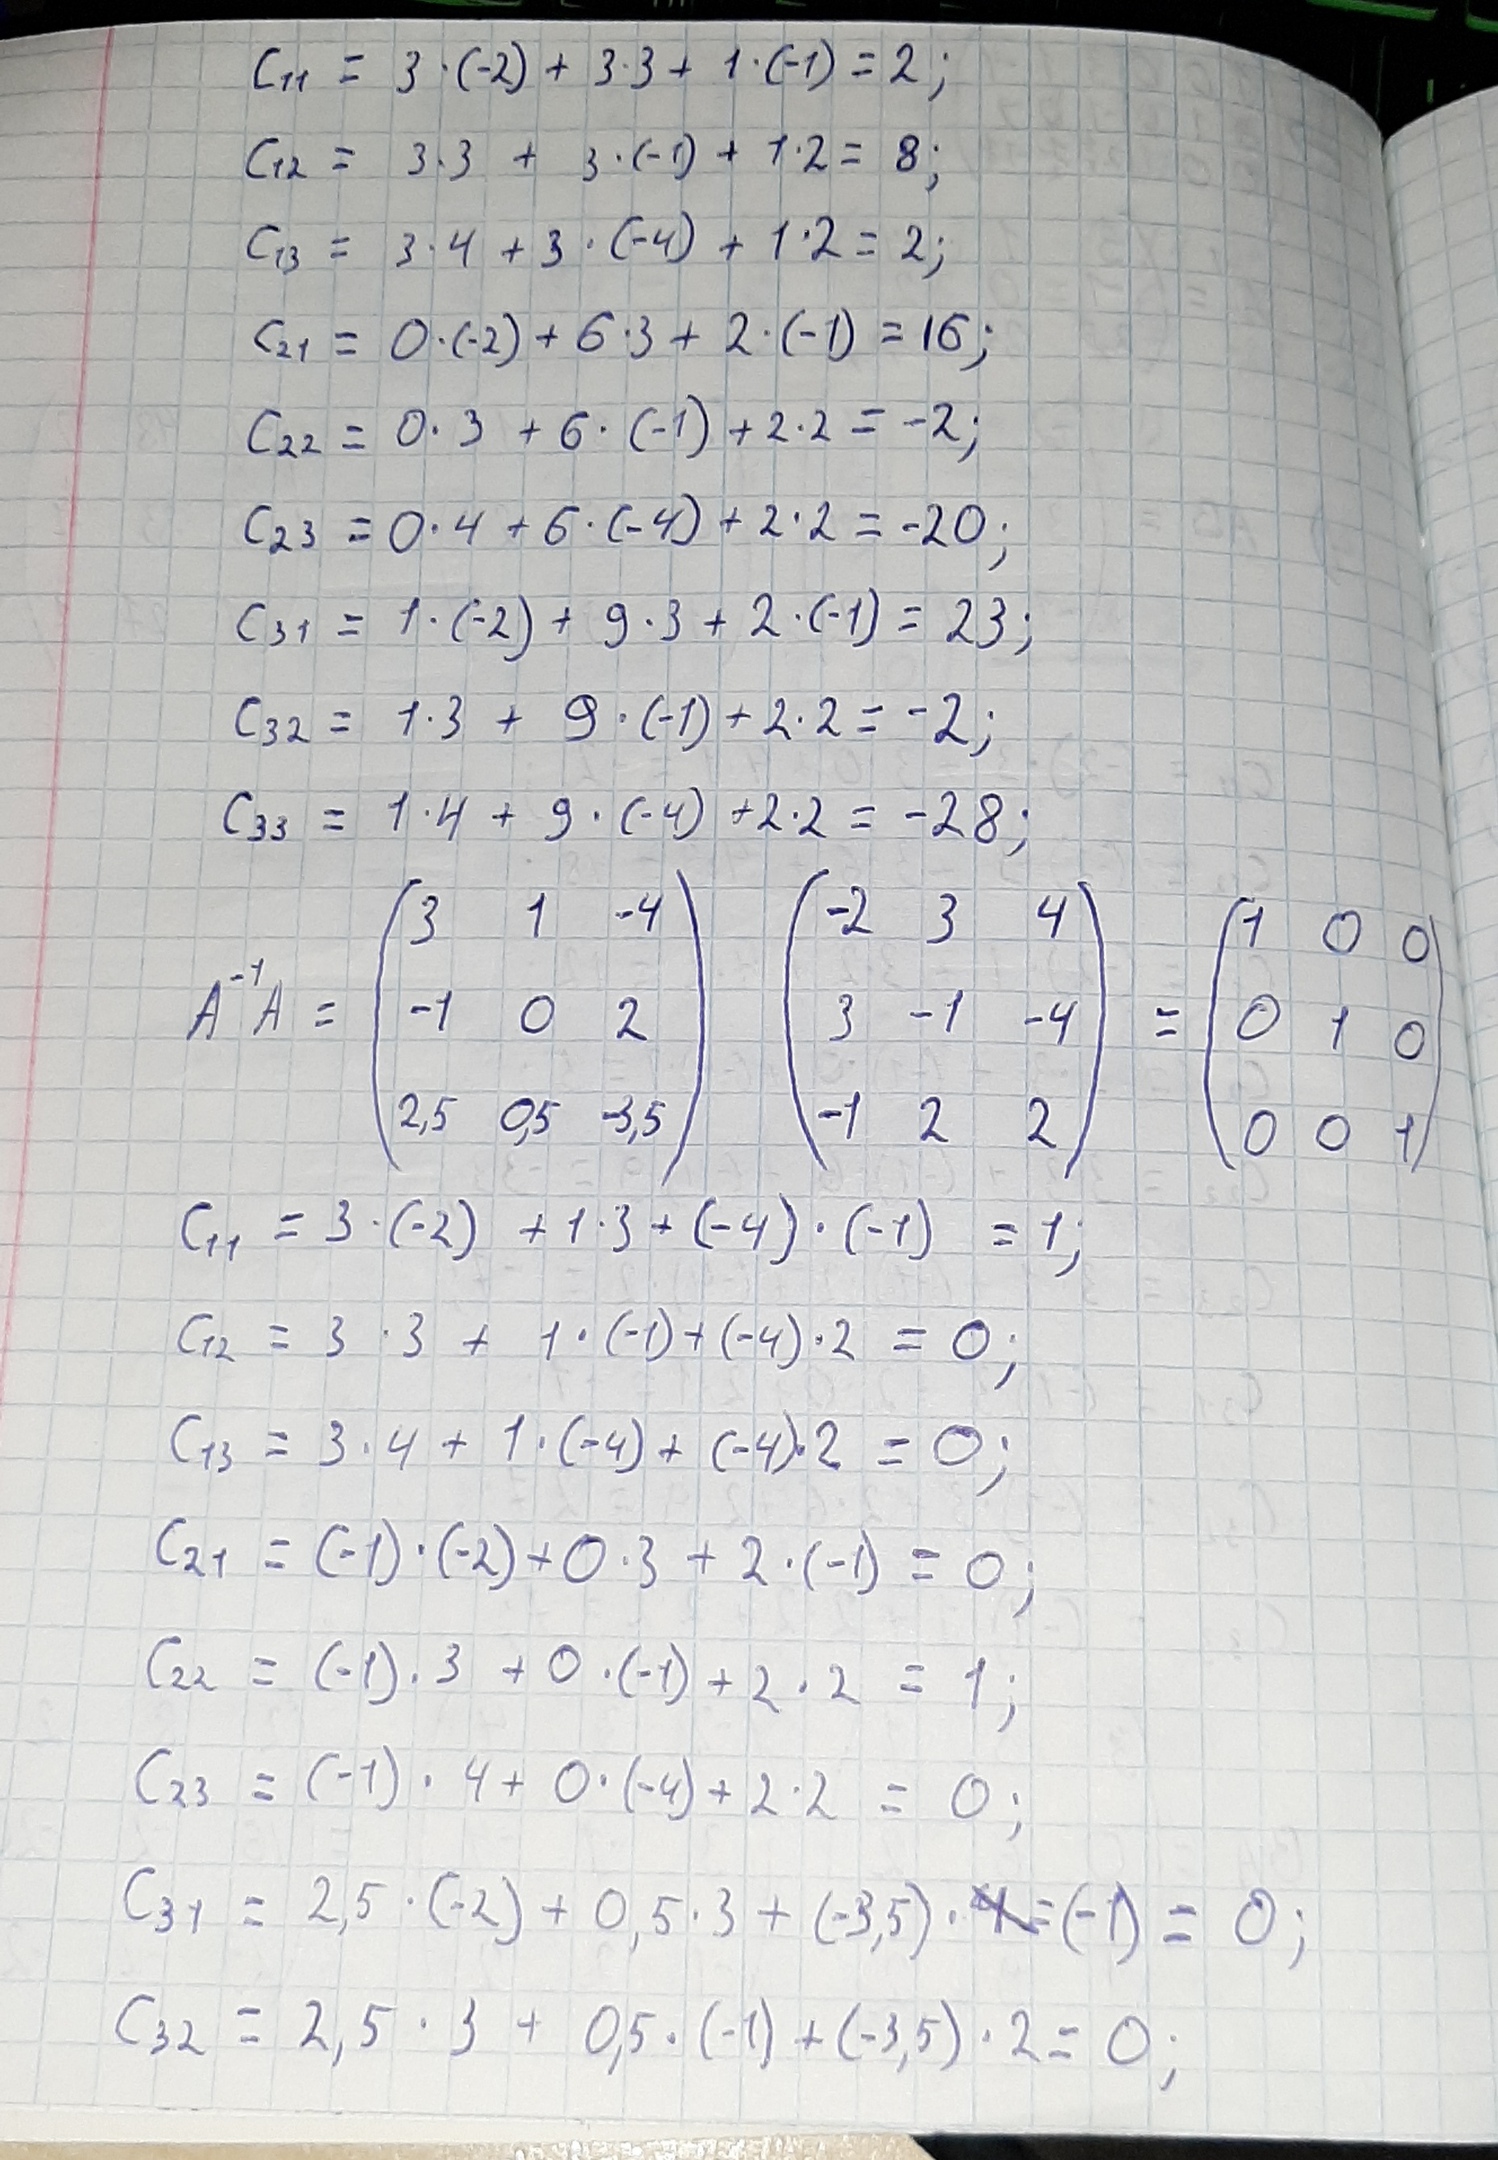 C₁₁ = 3·(-2) + 3·3 + 1·(-1) = 2;
C₁₂ = 3·3 + 3·(-1) + 1·2 = 8;
C₁₃ = 3·4 + 3·(-4) + 1·2 = 2;
C₂₁ = 0·(-2) + 6·3 + 2·(-1) = 16;
C₂₂ = 0·3 + 6·(-1) + 2·2 = -2;
C₂₃ = 0·4 + 6·(-4) + 2·2 = -20;
C₃₁ = 1·(-2) + 9·3 + 2·(-1) = 23;
C₃₂ = 1·3 + 9·(-1) + 2·2 = -2;
C₃₃ = 1·4 + 9·(-4) + 2·2 = -28;
(3 1 -4) (-2 3 4) (1 0 0)
A⁻¹A = (-1 0 2) (3 -1 -4) = (0 1 0)
(2,5 0,5 -3,5) (-1 2 2) (0 0 1)
C₁₁ = 3·(-2) + 1·3 + (-4)·(-1) = 1;
C₁₂ = 3·3 + 1·(-1) + (-4)·2 = 0;
C₁₃ = 3·4 + 1·(-4) + (-4)·2 = 0;
C₂₁ = (-1)·(-2) + 0·3 + 2·(-1) = 0;
C₂₂ = (-1)·3 + 0·(-1) + 2·2 = 1;
C₂₃ = (-1)·4 + 0·(-4) + 2·2 = 0;
C₃₁ = 2,5·(-2) + 0,5·3 + (-3,5)·(-1) = 0;
C₃₂ = 2,5·3 + 0,5·(-1) + (-3,5)·2 = 0;